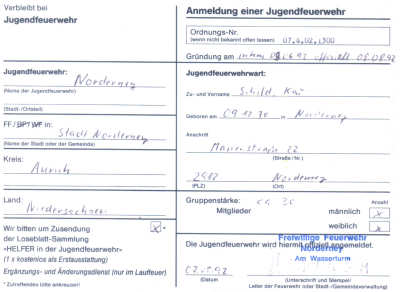 Verbleibt bei
Jugendfeuerwehr
Jugendfeuerwehr:
Norderney
(Name der Jugendfeuerwehr)
(Stadt-/Ortsteil)
FF/BF/WF in:
Stadt Norderney
(Name der Stadt oder der Gemeinde)
Kreis:
Aurich
Land:
Niedersachsen
Wir bitten um Zusendung
der Loseblatt-Sammlung
«HELFER in der Jugendfeuerwehr»
(1 x kostenlos als Erstausstattung)
Ergänzungs- und Änderungsdienst (nur im Lauffeuer)
* Zutreffendes bitte ankreuzen!
Anmeldung einer Jugendfeuerwehr
Ordnungs-Nr.
(wenn nicht bekannt offen lassen)
Gründung am 08.08.92
Jugendfeuerwehrwart:
Zu- und Vorname Schild, Kai
Geboren am Norderney
Anschrift
22
(Straße / Nr.)
2982 Norderney
(PLZ) (Ort)
Gruppenstärke: ca 20
Anzahl
Mitglieder männlich x
weiblich x
Die Jugendfeuerwehr wird hiermit offiziell angemeldet.
Freiwillige Feuerwehr
Norderney
Am Wasserturm
(Datum) (Unterschrift und Stempel)
Leiter der Feuerwehr oder Stadt-/Gemeindeverwaltung)